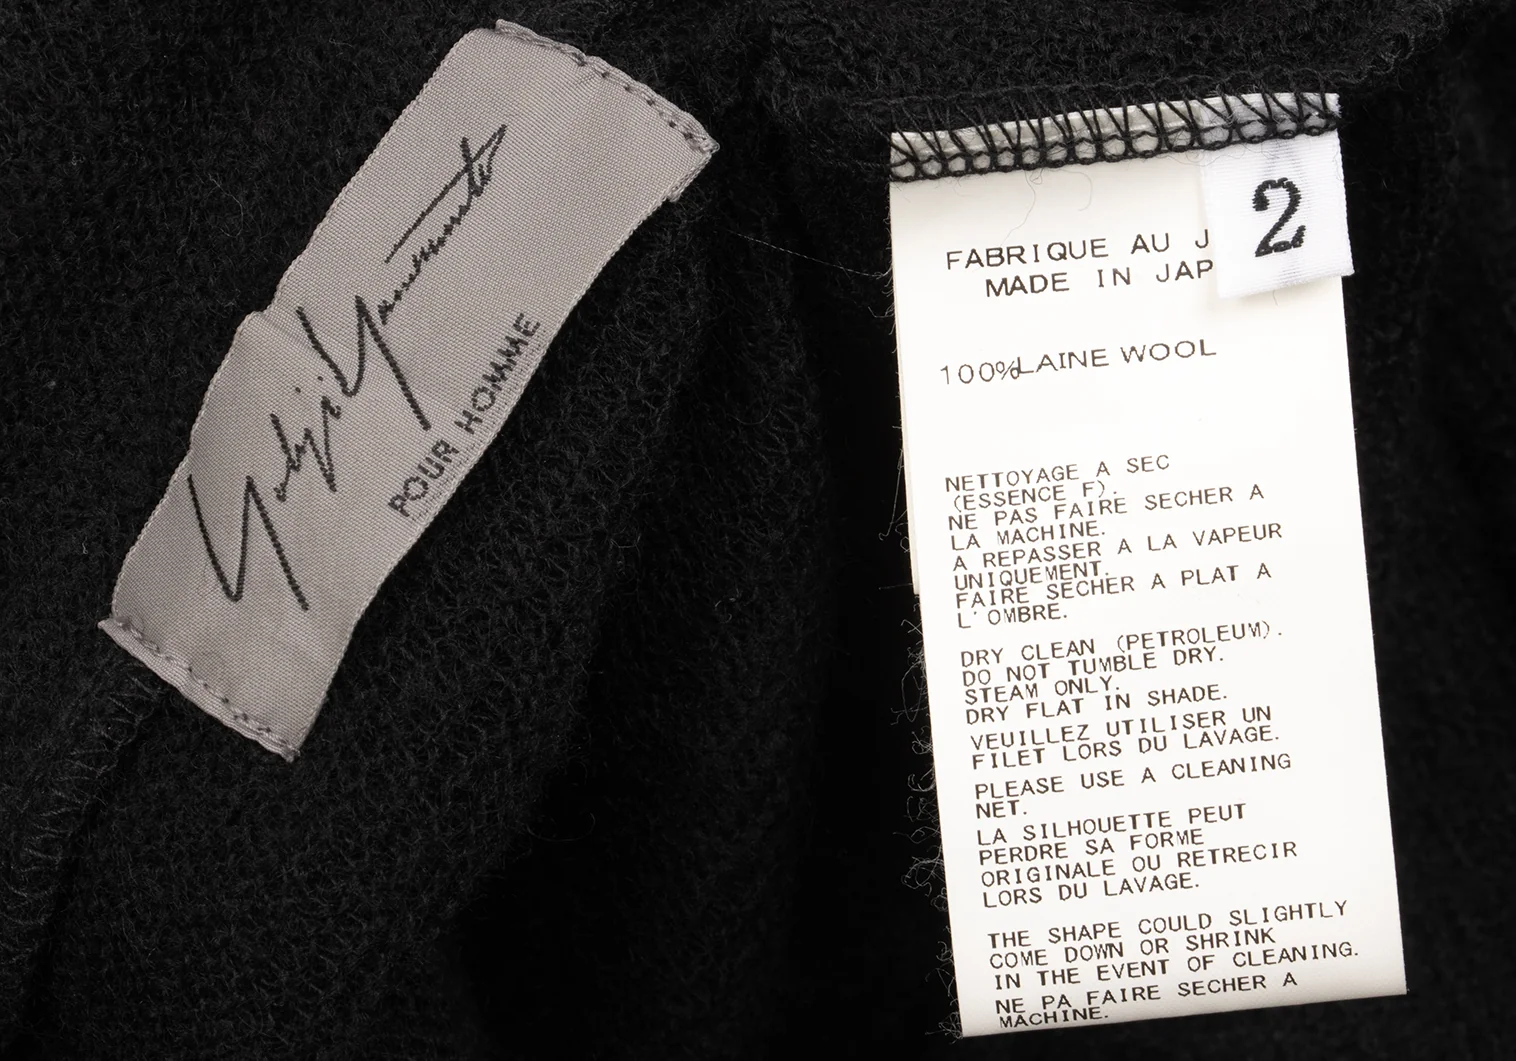 Yohji Yamamoto
POUR HOMME
2
FABRIQUE AU J
MADE IN JAP
100%LAINE WOOL
NETTOYAGE A SEC
(ESSENCE F).
NE PAS FAIRE SECHER A
LA MACHINE.
A REPASSER A LA VAPEUR
UNIQUEMENT.
FAIRE SECHER A PLAT A
L'OMBRE.
DRY CLEAN (PETROLEUM).
DO NOT TUMBLE DRY.
STEAM ONLY.
DRY FLAT IN SHADE.
VEUILLEZ UTILISER UN
FILET LORS DU LAVAGE.
PLEASE USE A CLEANING
NET.
LA SILHOUETTE PEUT
PERDRE SA FORME
ORIGINALE OU RETRECIR
LORS DU LAVAGE.
THE SHAPE COULD SLIGHTLY
COME DOWN OR SHRINK
IN THE EVENT OF CLEANING.
NE PA FAIRE SECHER A
MACHINE.